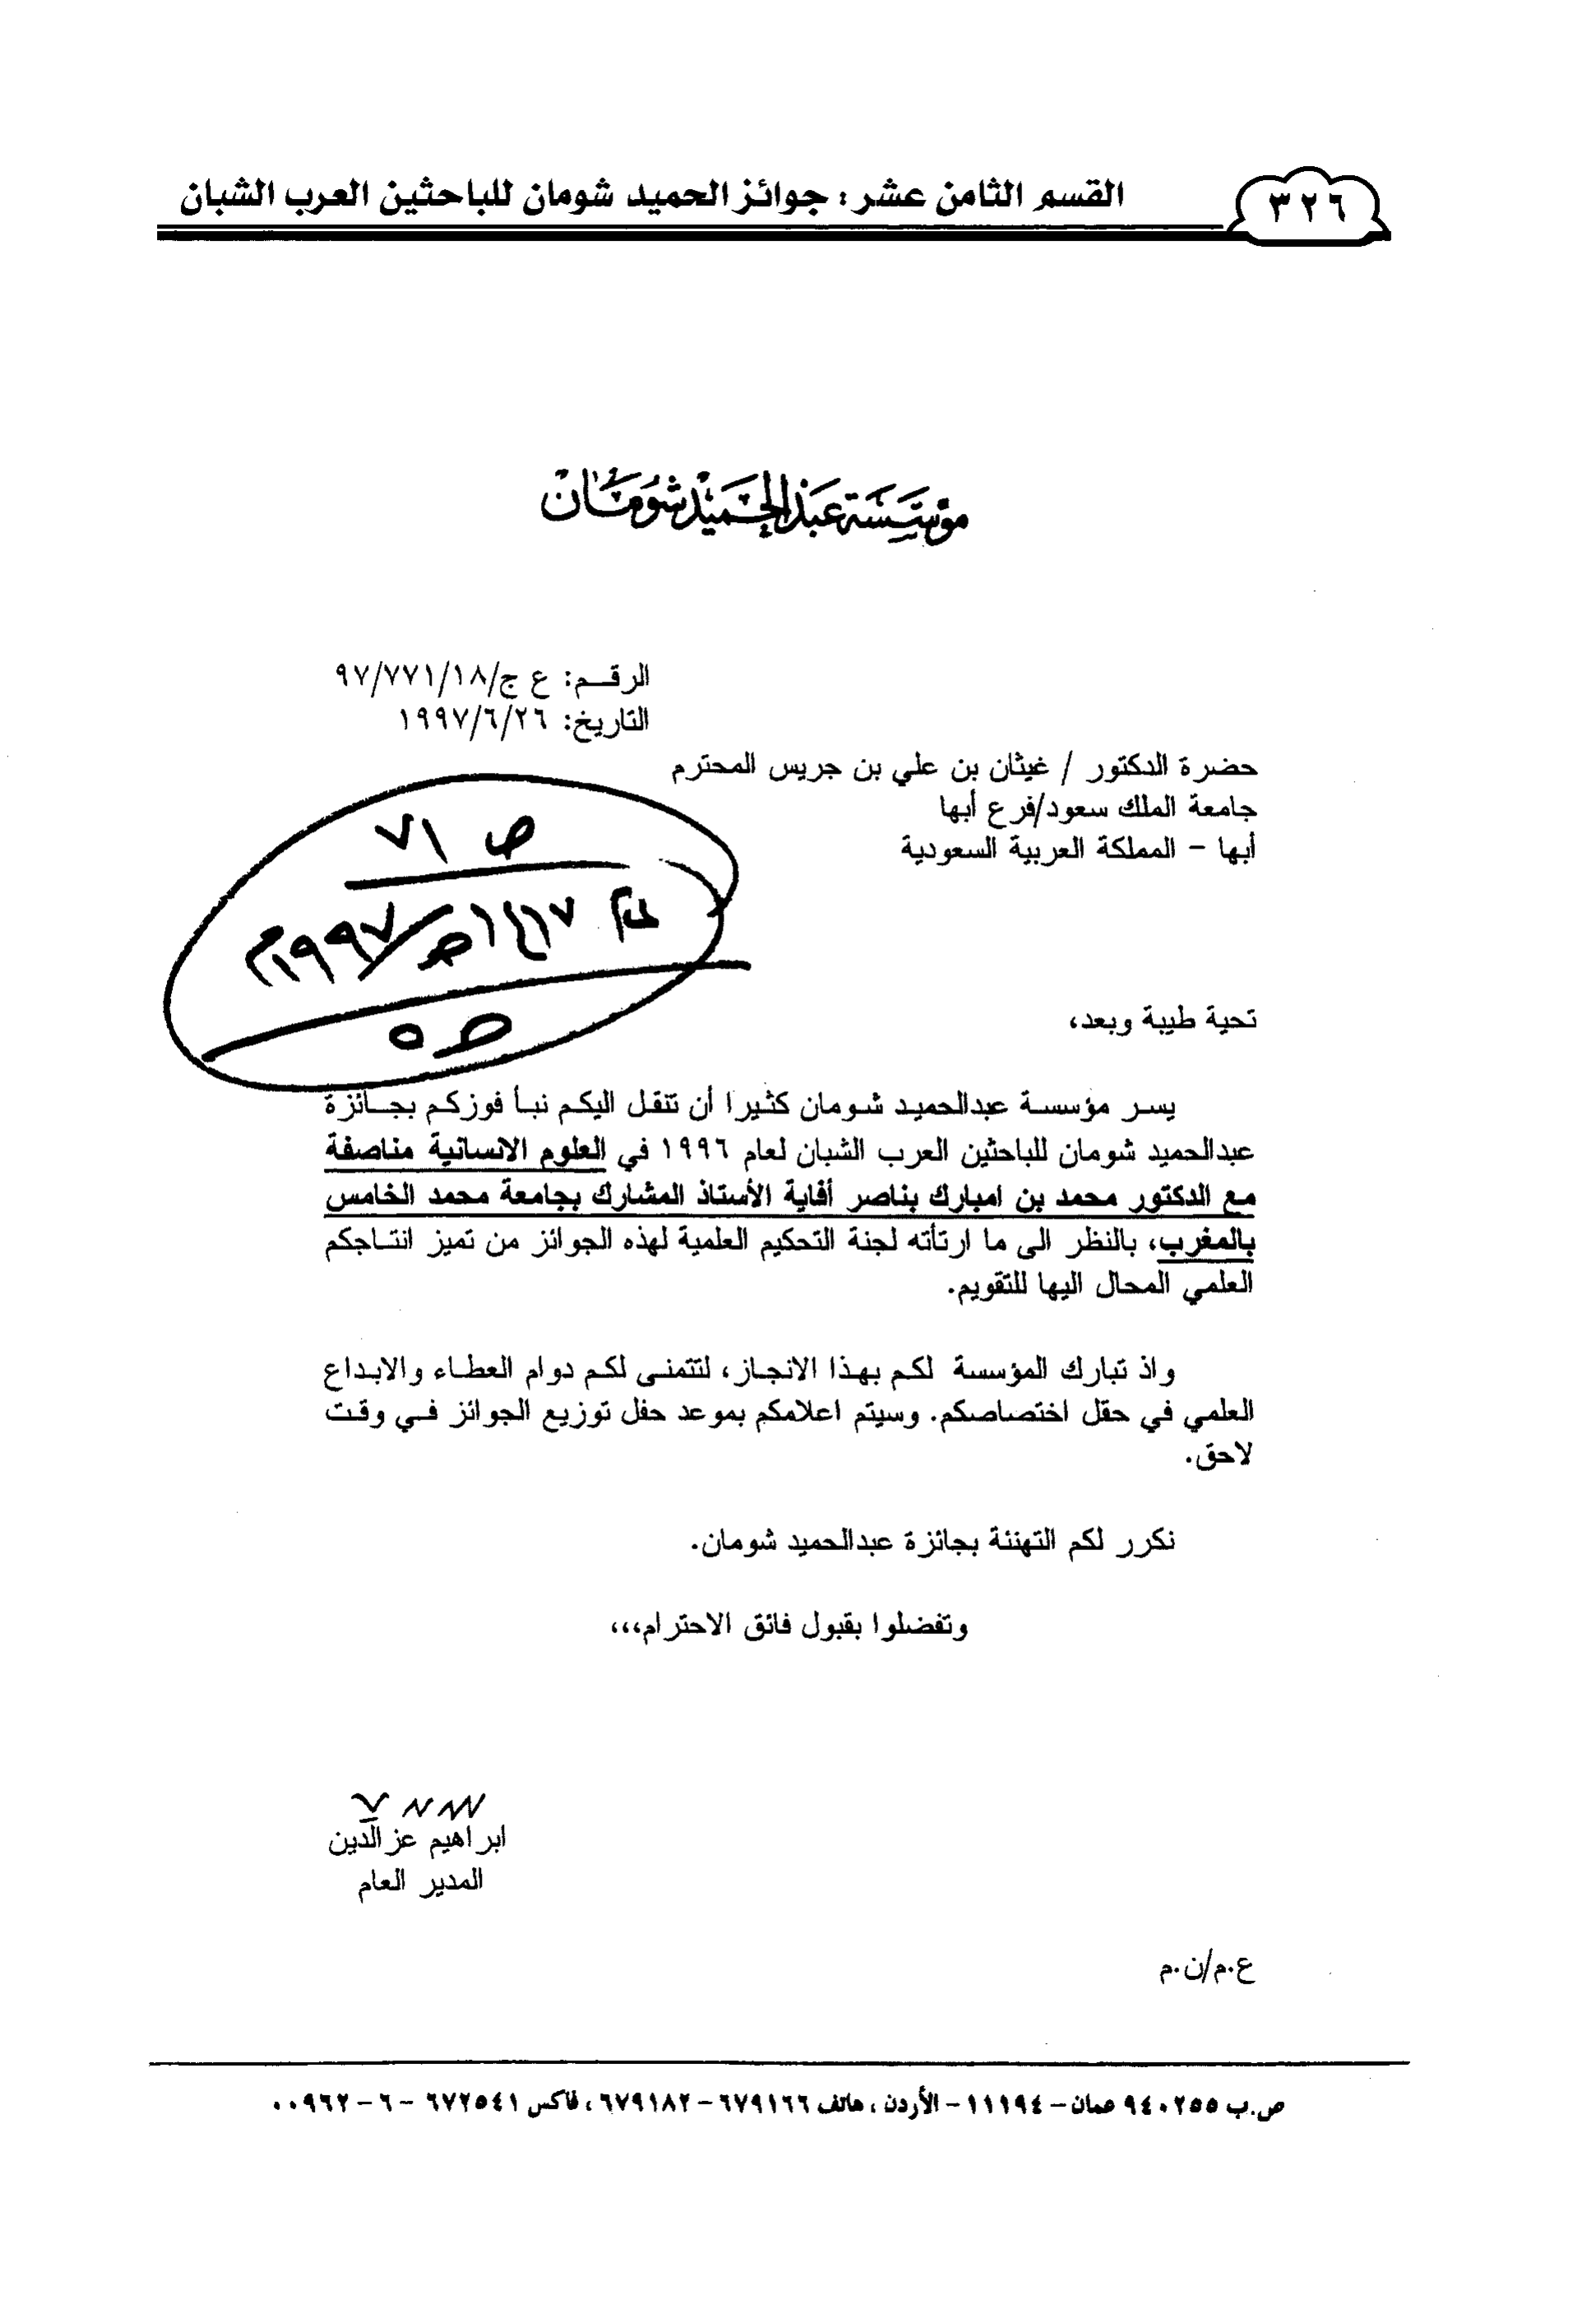 القسم الثامن عشر : جوائز الحميد شومان للباحثين العرب الشبان
٣٢٦
مؤسسة عبد الحميد شومان
الرقم: ع ج/٩٧/٧٧١/١٨
التاريخ: ١٩٩٧/٦/٢٦
حضرة الدكتور / غيثان بن علي بن جريس المحترم
جامعة الملك سعود/فرع أبها
أبها - المملكة العربية السعودية
ص ٧١
١٤١٧هـ/١٩٩٧م
ص ٥
تحية طيبة وبعد،
يسر مؤسسة عبدالحميد شومان كثيرا أن تنقل اليكم نبأ فوزكم بجائزة
عبدالحميد شومان للباحثين العرب الشبان لعام ١٩٩٦ في العلوم الانسانية مناصفة
مع الدكتور محمد بن امبارك بناصر أفاية الأستاذ المشارك بجامعة محمد الخامس
بالمغرب، بالنظر الى ما ارتأته لجنة التحكيم العلمية لهذه الجوائز من تميز انتاجكم
العلمي المحال اليها للتقويم.
واذ تبارك المؤسسة لكم بهذا الانجاز، لتتمنى لكم دوام العطاء والابداع
العلمي في حقل اختصاصكم. وسيتم اعلامكم بموعد حفل توزيع الجوائز في وقت
لاحق.
نكرر لكم التهنئة بجائزة عبدالحميد شومان.
وتفضلوا بقبول فائق الاحترام،،،
ابراهيم عزالدين
المدير العام
ع.م/ن.م
ص.ب ٩٤٠٢٥٥ عمان - ١١١٩٤ - الأردن ، هاتف ٦٧٩١٦٦ - ٦٧٩١٨٢ ، فاكس ٦٧٢٥٤١ - ٦ - ٠٠٩٦٢